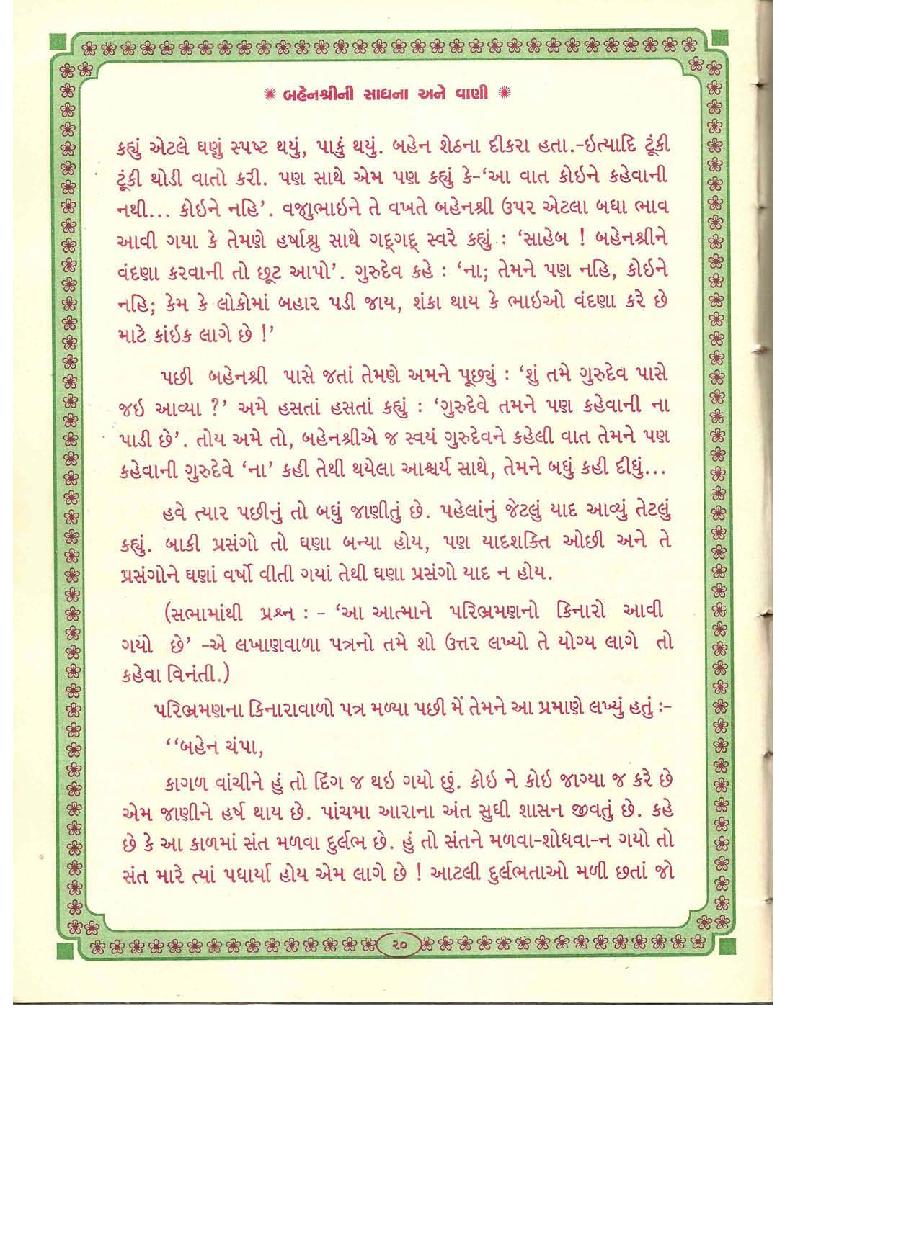 ✺ બહેનશ્રીની સાધના અને વાણી ✺
કહ્યું એટલે ઘણું સ્પષ્ટ થયું, પાકું થયું. બહેન શેઠના દીકરા હતા.-ઇત્યાદિ ટૂંકી
ટૂંકી થોડી વાતો કરી. પણ સાથે એમ પણ કહ્યું કે-‘આ વાત કોઇને કહેવાની
નથી... કોઇને નહિ’. વજુભાઇને તે વખતે બહેનશ્રી ઉપર એટલા બધા ભાવ
આવી ગયા કે તેમણે હર્ષાશ્રુ સાથે ગદ્ગદ્ સ્વરે કહ્યું : ‘સાહેબ ! બહેનશ્રીને
વંદણા કરવાની તો છૂટ આપો’. ગુરુદેવ કહે : ‘ના; તેમને પણ નહિ, કોઇને
નહિ; કેમ કે લોકોમાં બહાર પડી જાય, શંકા થાય કે ભાઇઓ વંદણા કરે છે
માટે કાંઇક લાગે છે !’
પછી બહેનશ્રી પાસે જતાં તેમણે અમને પૂછ્યું : ‘શું તમે ગુરુદેવ પાસે
જઇ આવ્યા ?’ અમે હસતાં હસતાં કહ્યું : ‘ગુરુદેવે તમને પણ કહેવાની ના
પાડી છે’. તોય અમે તો, બહેનશ્રીએ જ સ્વયં ગુરુદેવને કહેલી વાત તેમને પણ
કહેવાની ગુરુદેવે ‘ના’ કહી તેથી થયેલા આશ્ચર્ય સાથે, તેમને બધું કહી દીધું...
હવે ત્યાર પછીનું તો બધું જાણીતું છે. પહેલાંનું જેટલું યાદ આવ્યું તેટલું
કહ્યું. બાકી પ્રસંગો તો ઘણા બન્યા હોય, પણ યાદશક્તિ ઓછી અને તે
પ્રસંગોને ઘણાં વર્ષો વીતી ગયાં તેથી ઘણા પ્રસંગો યાદ ન હોય.
(સભામાંથી પ્રશ્ન : - ‘આ આત્માને પરિભ્રમણનો કિનારો આવી
ગયો છે’ -એ લખાણવાળા પત્રનો તમે શો ઉત્તર લખ્યો તે યોગ્ય લાગે તો
કહેવા વિનંતી.)
પરિભ્રમણના કિનારાવાળો પત્ર મળ્યા પછી મેં તેમને આ પ્રમાણે લખ્યું હતું :-
‘‘બહેન ચંપા,
કાગળ વાંચીને હું તો દિંગ જ થઇ ગયો છું. કોઇ ને કોઇ જાગ્યા જ કરે છે
એમ જાણીને હર્ષ થાય છે. પાંચમા આરાના અંત સુધી શાસન જીવતું છે. કહે
છે કે આ કાળમાં સંત મળવા દુર્લભ છે. હું તો સંતને મળવા-શોધવા-ન ગયો તો
સંત મારે ત્યાં પધાર્યા હોય એમ લાગે છે ! આટલી દુર્લભતાઓ મળી છતાં જો
૨૦